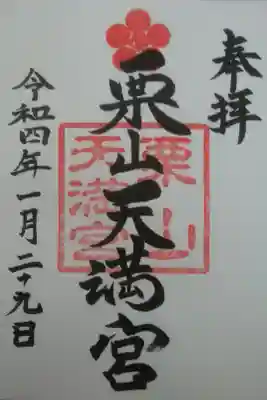 奉拝
栗山天満宮
栗山
天満宮
令和四年一月二十九日